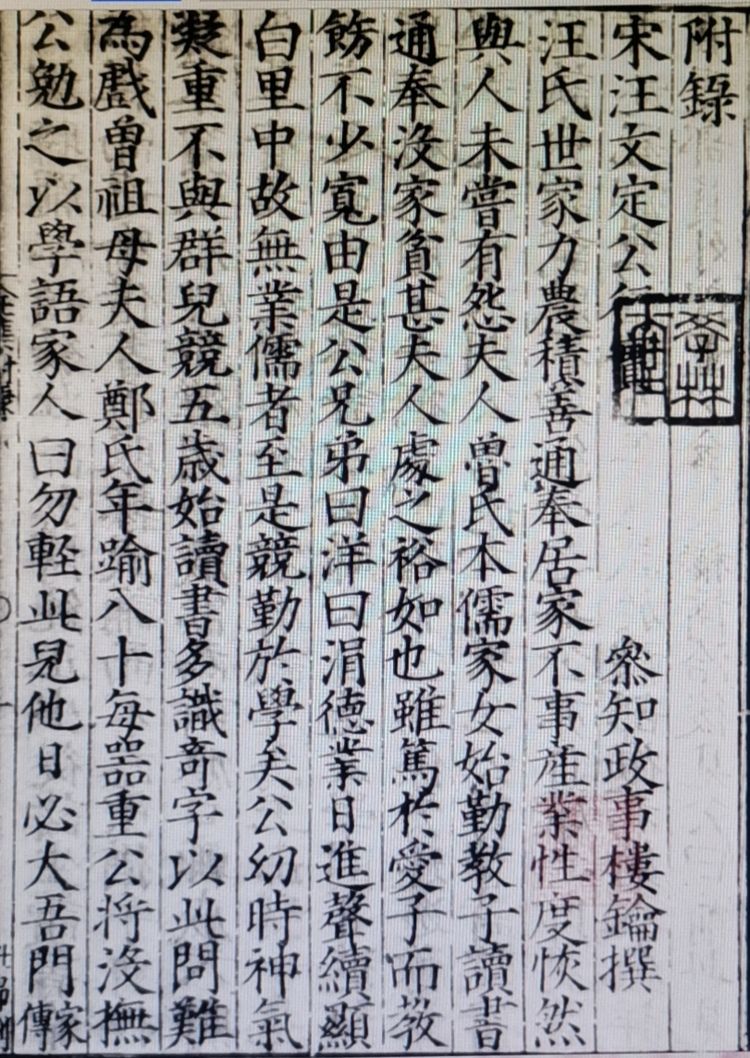 附錄
宋汪文定公行 叅知政事樓鑰撰
汪氏世家力農積善通奉居家不事産業性度恢然
與人未嘗有怨夫人魯氏本儒家女始勤教子讀書
通奉沒家貧甚夫人處之裕如也雖篤於愛子而教
飭不少寬由是公兄弟曰洋曰涓德業日進聲績顯
白里中故無業儒者至是競勤於學矣公幼時神氣
凝重不與群兒競五歲始讀書多識竒字以此問難
為戲曾祖母夫人鄭氏年踰八十每噐重公将沒撫
公勉之以學語家人曰勿輕此兒他日必大吾門家傳